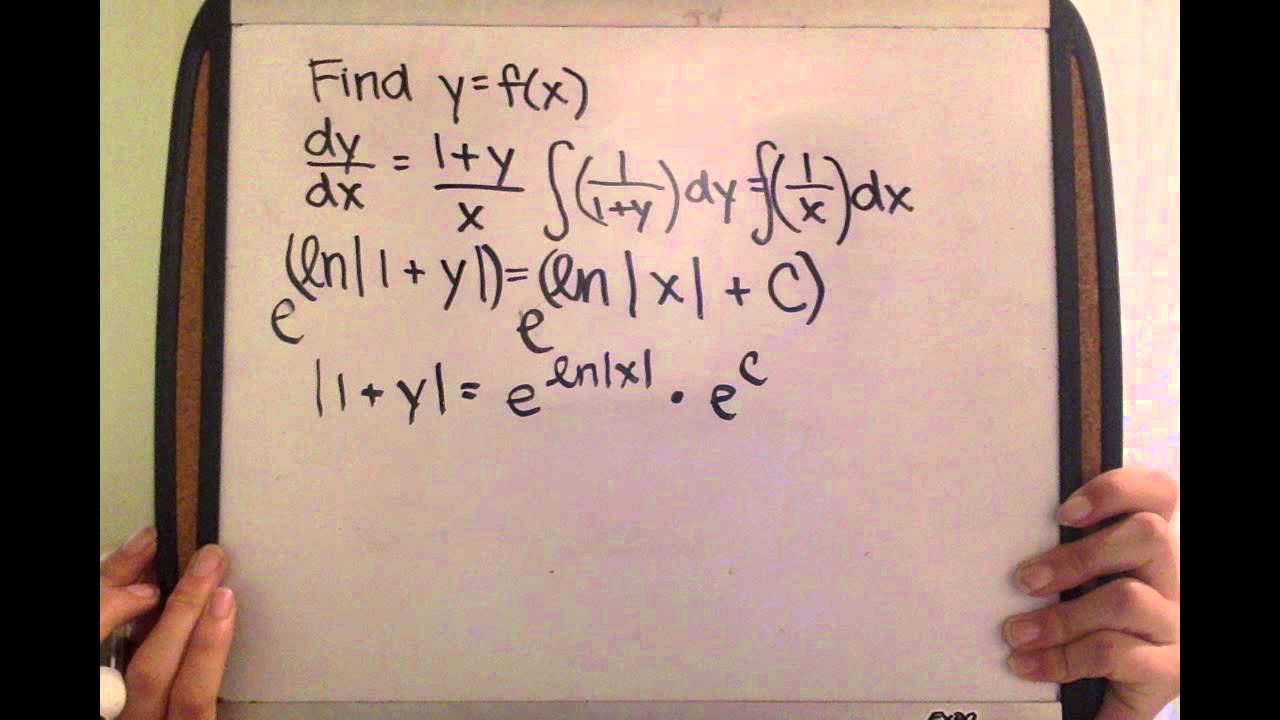 Find y=f(x)
dy/dx = 1+y/x ∫(1/1+y)dy=∫(1/x)dx
e^(ln|1+y|)=e^(ln|x|+C)
|1+y|=e^ln|x| · e^C